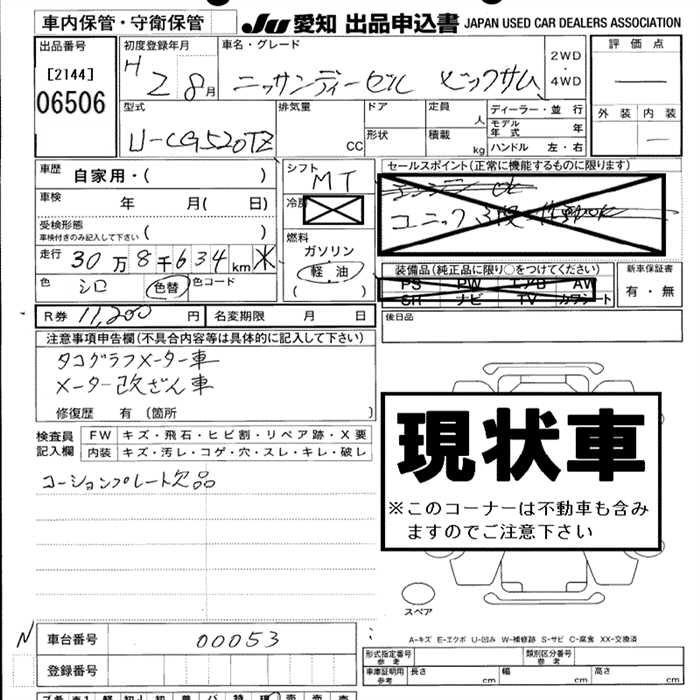 車内保管・守衛保管
JU 愛知 出品申込書 JAPAN USED CAR DEALERS ASSOCIATION
出品番号
[2144]
06506
初度登録年月
H 2 8月
車名・グレード
ニッサンディーゼル ビックサム
2WD
・
4WD
評価点
外装 内装
型式
U-CG520TZ
排気量
CC
ドア
形状
定員
人
積載
kg
ディーラー・並行
モデル年式 年
ハンドル 左・右
車歴
自家用・( )
車検 年 月( 日)
受検形態
車検付きのみ記入して下さい ( )
走行 30万8千634km
色 シロ 色替 色コード
シフト
MT
冷房
燃料
ガソリン
軽油
セールスポイント(正常に機能するものに限ります)
ユニック 3段
装備品(純正品に限り○をつけてください)
PS PW エアB AW
SR ナビ TV カワシート
新車保証書
有・無
R券 11,200 円
名変期限 月 日
後日品
注意事項申告欄(不具合内容等は具体的に記入して下さい)
タコグラフメーター車
メーター改ざん車
修復歴 有(箇所 )
検査員記入欄
FW キズ・飛石・ヒビ割・リペア跡・X要
内装 キズ・汚レ・コゲ・穴・スレ・キレ・破レ
コーションプレート欠品
現状車
※このコーナーは不動車も含み
ますのでご注意下さい
スペア
A-キズ E-エクボ U-凹み W-補修跡 S-サビ C-腐食 XX-交換済
N
車台番号 00053
登録番号
形式指定番号
参考
類別区分番号
参考
車庫証明用
参考
長さ cm 幅 cm 高さ cm